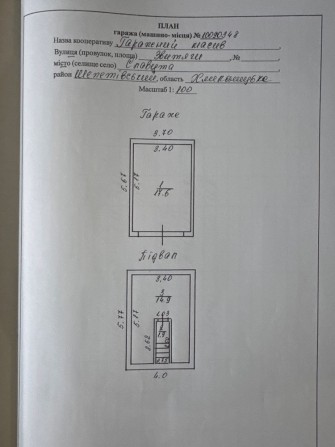 ПЛАН
гаража (машино- місця) № 10090948
Назва кооперативу Гаражний масив
Вулиця (провулок, площа) Звитяги , №
місто (селище село) Славута
район Шепетівський, область Хмельницька
Масштаб 1: 200
Гараж
3.70
3.40
5.67
1
17.6
Підвал
3.40
5.77
5.77
1
14.9
4.0